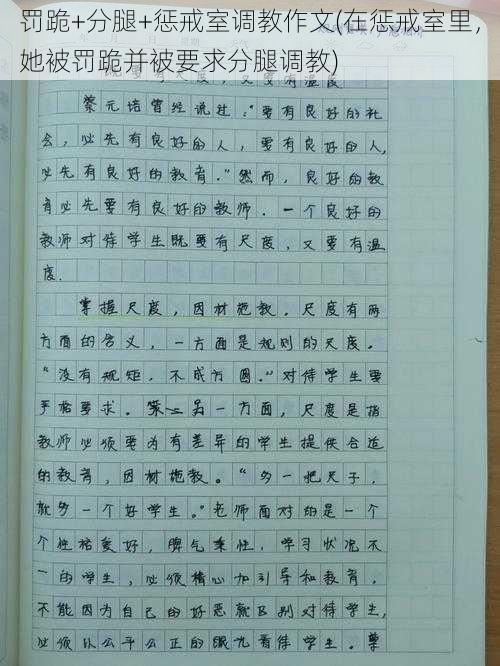 罚跪+分腿+惩戒室调教作文(在惩戒室里，
她被罚跪并被要求分腿调教)
蔡元培曾经说过："要有良好的社
会，必先有良好的人，要有良好的人，
必先有良好的教育。"然而，良好的教
育必先要有良好的教师．一个良好的
教师对待学生既要有尺度，又要有温
度．
掌握尺度，因材施教．尺度有两
方面的含义，一方面是规则的尺度．
"没有规矩，不成方圆．"对待学生要
严格要求．另一方面，尺度是指
教师必须要为有差异的学生提供合适
的教育，因材施教．"多一把尺子，
就多一个好学生．"老师面对的是一个
个性格爱好，脾气秉性，学习状况不
一的学生，必须精心加引导和教育，
不能因为自己的好恶就区别对待学生，
必须以公平公正的眼光看待学生．掌